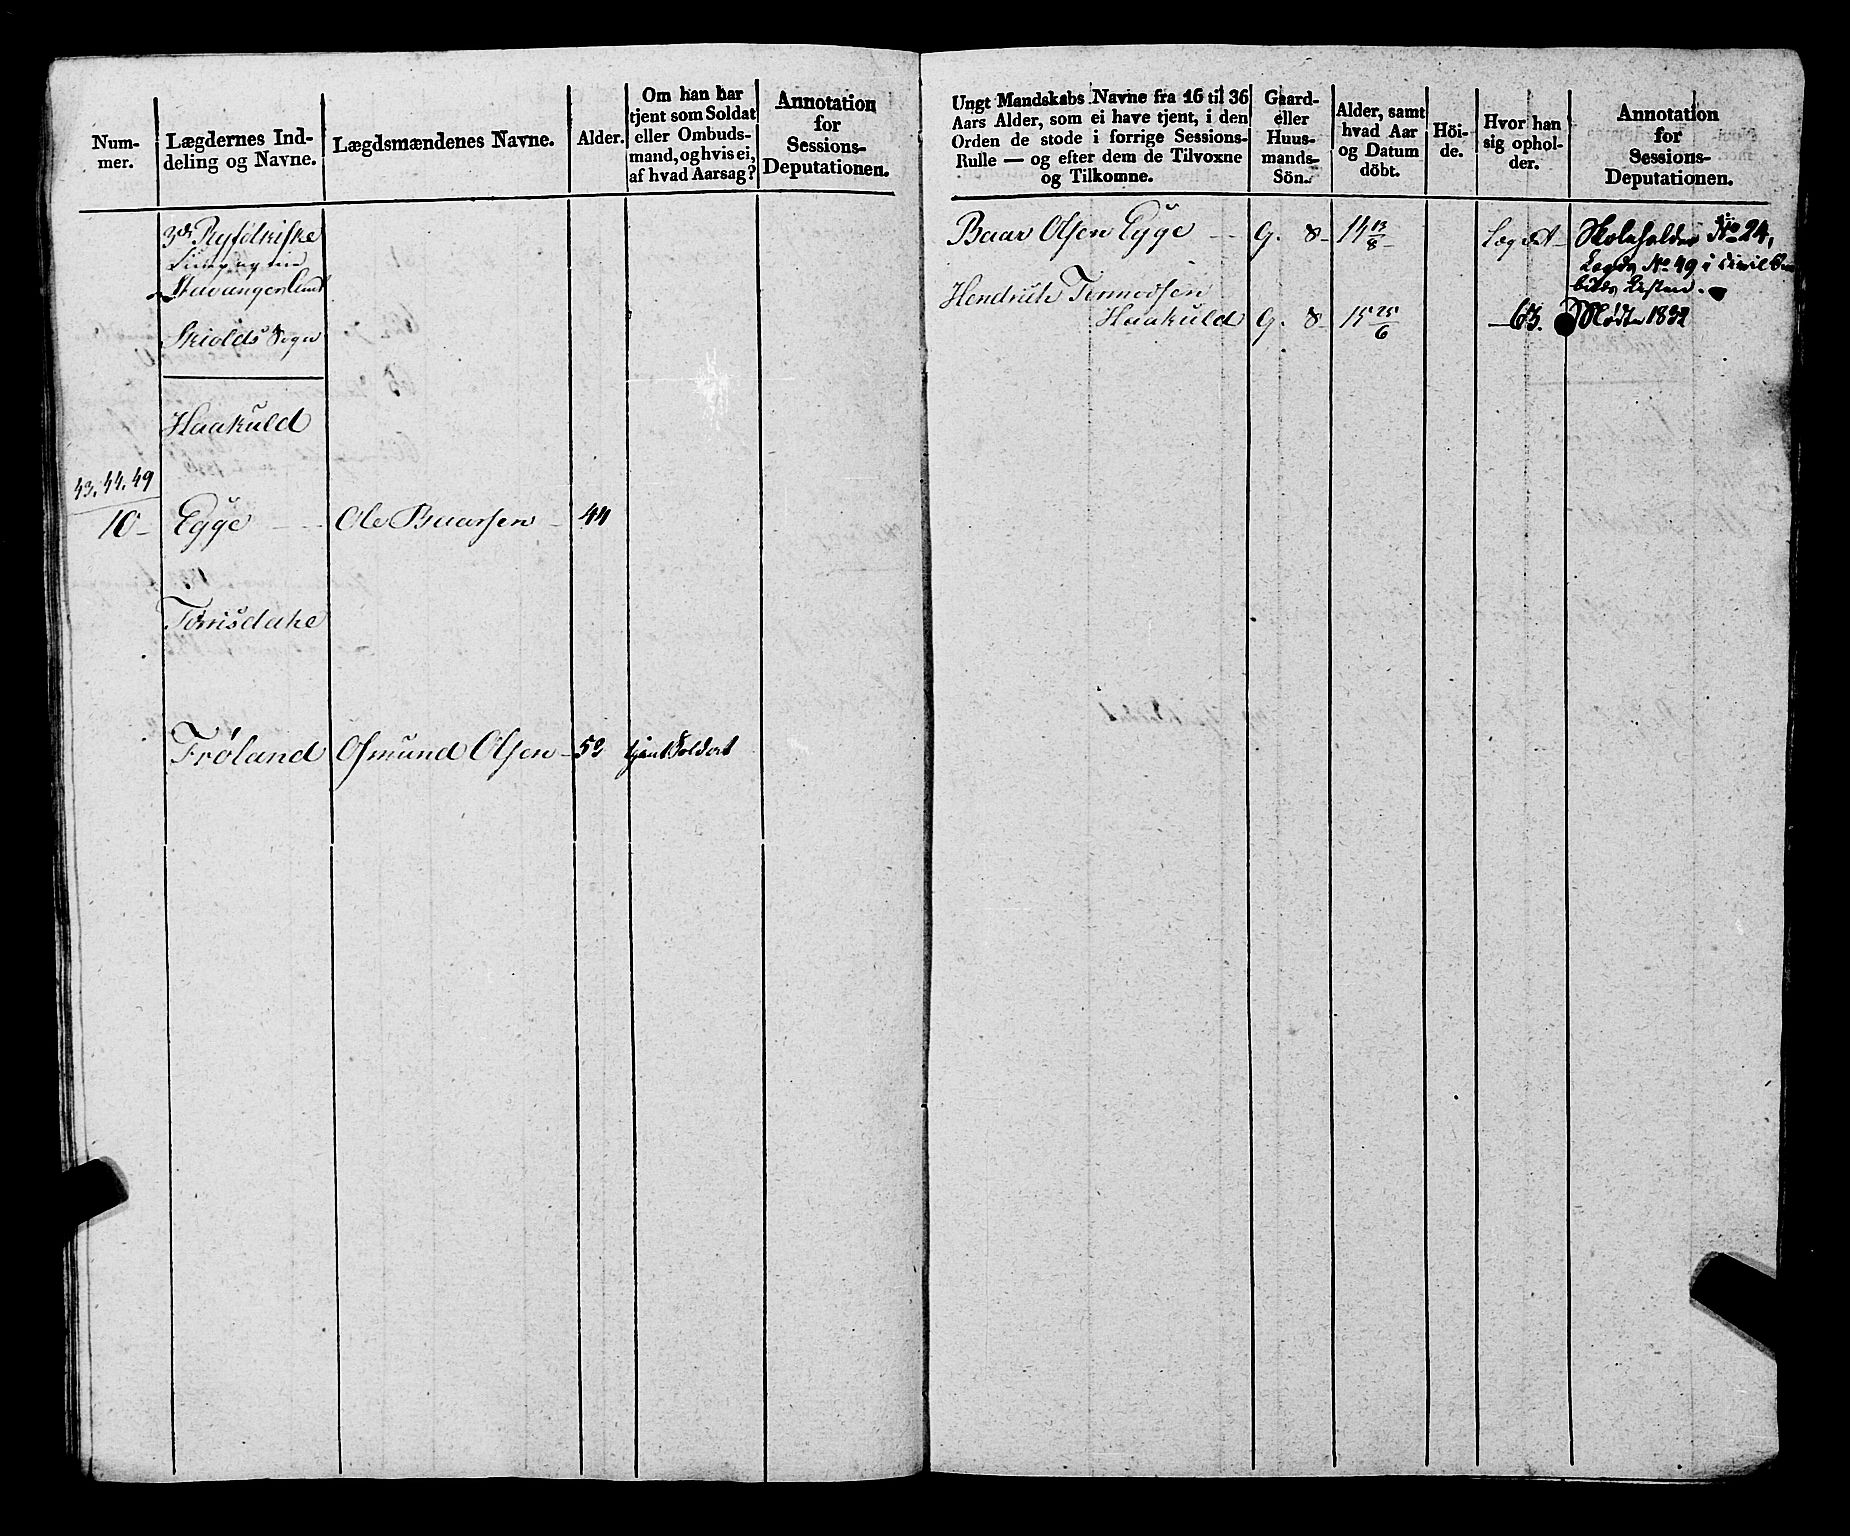 Num-
mer.
Lægdernes Ind-
deling og Navne.
Lægdsmændenes Navne.
Alder.
Om han har
tjent som Soldat
eller Ombuds-
mand, og hvis ei,
af hvad Aarsag?
Annotation
for
Sessions-
Deputationen.
3die Ryfølkiske
Stavanger Amt
Skiolds Sogn
Haakuld
43, 44, 49
10 Egge Ole Baarsen 44
Tørrisdahe
Frøland Osmund Olsen 52 tjent Soldat
Ungt Mandskabs Navne fra 16 til 36
Aars Alder, som ei have tjent, i den
Orden de stode i forrige Sessions-
Rulle — og efter dem de Tilvoxne
og Tilkomne.
Gaard-
eller
Huus-
mands-
Sön.
Alder, samt
hvad Aar
og Datum
döbt.
Höi-
de.
Hvor han
sig ophol-
der.
Annotation
for
Sessions-
Deputationen.
Baar Olsen Egge G. 8 14 13/8 Lægdet Skoleholder No 24,
Lægds No 49 i Civil
Listen.
Hendrich Tormodsen
Haakuld G. 8 15 25/6 63. Mødte 1832